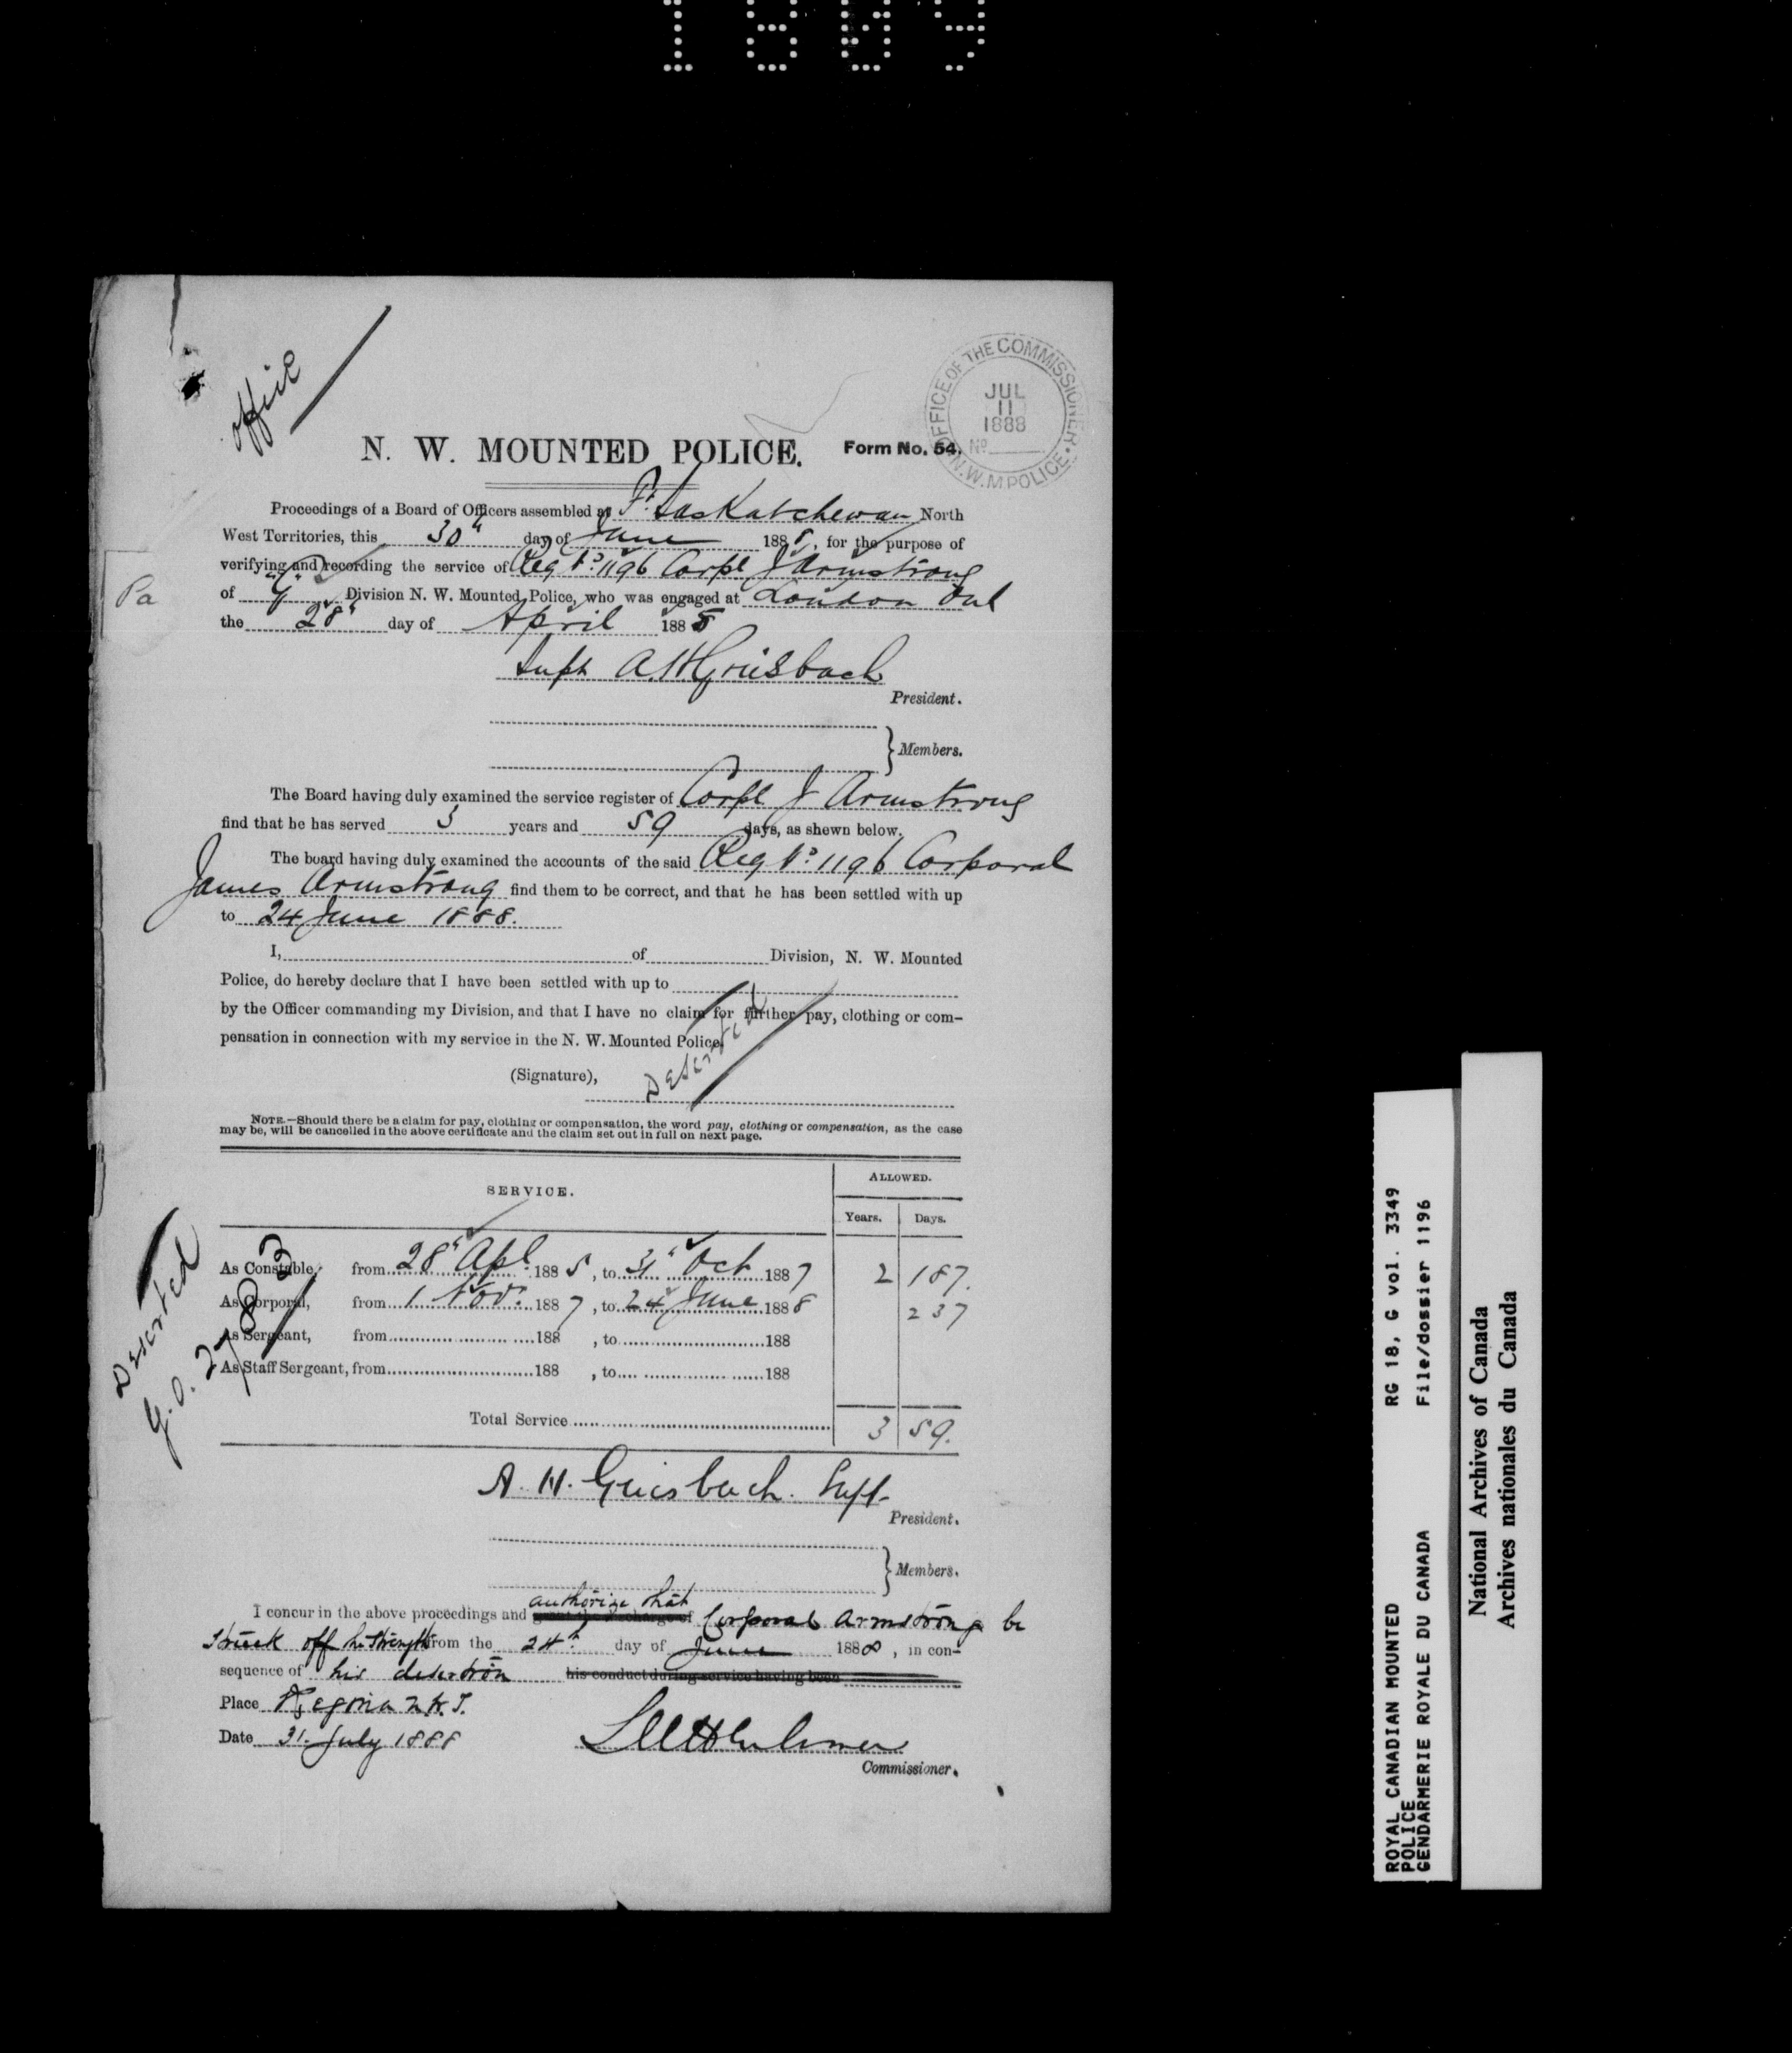 1809
office
OFFICE OF THE COMMISSIONER
JUL
11
1888
No
N.W.M POLICE
N. W. MOUNTED POLICE. Form No. 54.
Proceedings of a Board of Officers assembled at Ft. Saskatchewan North
West Territories, this 30th day of June 1888, for the purpose of
verifying and recording the service of Reg No. 1196 Corpl J Armstrong
of "G" Division N. W. Mounted Police, who was engaged at London Ont
Pa
the 28th day of April 1885
Supt A.H Griesbach
President.
Members.
The Board having duly examined the service register of Corpl J Armstrong
find that he has served 3 years and 59 days, as shewn below.
The board having duly examined the accounts of the said Reg No. 1196 Corporal
James Armstrong find them to be correct, and that he has been settled with up
to 24 June 1888.
I, of Division, N. W. Mounted
Police, do hereby declare that I have been settled with up to
by the Officer commanding my Division, and that I have no claim for further pay, clothing or com-
pensation in connection with my service in the N. W. Mounted Police.
Deserted
(Signature),
NOTE.—Should there be a claim for pay, clothing or compensation, the word pay, clothing or compensation, as the case
may be, will be cancelled in the above certificate and the claim set out in full on next page.
SERVICE. ALLOWED.
Years. Days.
As Constable, from 28th Apl 1885, to 31st Oct 1887 2 187.
As Corporal, from 1 Nov. 1887, to 24 June 1888 237
As Sergeant, from 188 , to 188
As Staff Sergeant, from 188 , to 188
Total Service 3 59.
Deserted
G.O. 2783
A. H. Griesbach. Supt.
President.
Members.
authorize that
I concur in the above proceedings and grant the discharge of Corporal Armstrong be
struck off the strength from the 24th day of June 1888, in con-
sequence of his desertion his conduct during service having been
Place Regina N.W.T.
Date 31 July 1888
Commissioner.
ROYAL CANADIAN MOUNTED RG 18, G vol. 3349
POLICE
GENDARMERIE ROYALE DU CANADA File/dossier 1196
National Archives of Canada
Archives nationales du Canada